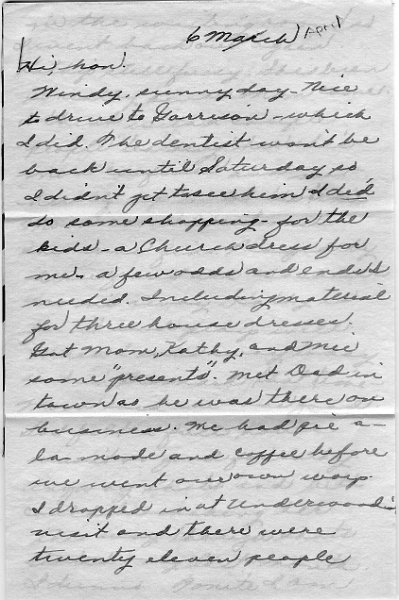 6 March April
Hi, hon.
Windy, sunny day - Nice
to drive to Garrison - which
I did. The dentist won't be
back until Saturday so
I didn't get to see him. I did
do some shopping - for the
kids - a Church dress for
me - a few odds and ends I
needed. Including material
for three house dresses.
Got Mom, Kathy, and Mic
some "presents". Met Dad in
town as he was there on
business. We had pie a-
la-mode and coffee before
we went our own ways.
I dropped in at Underwood -
visit and there were
twenty eleven people